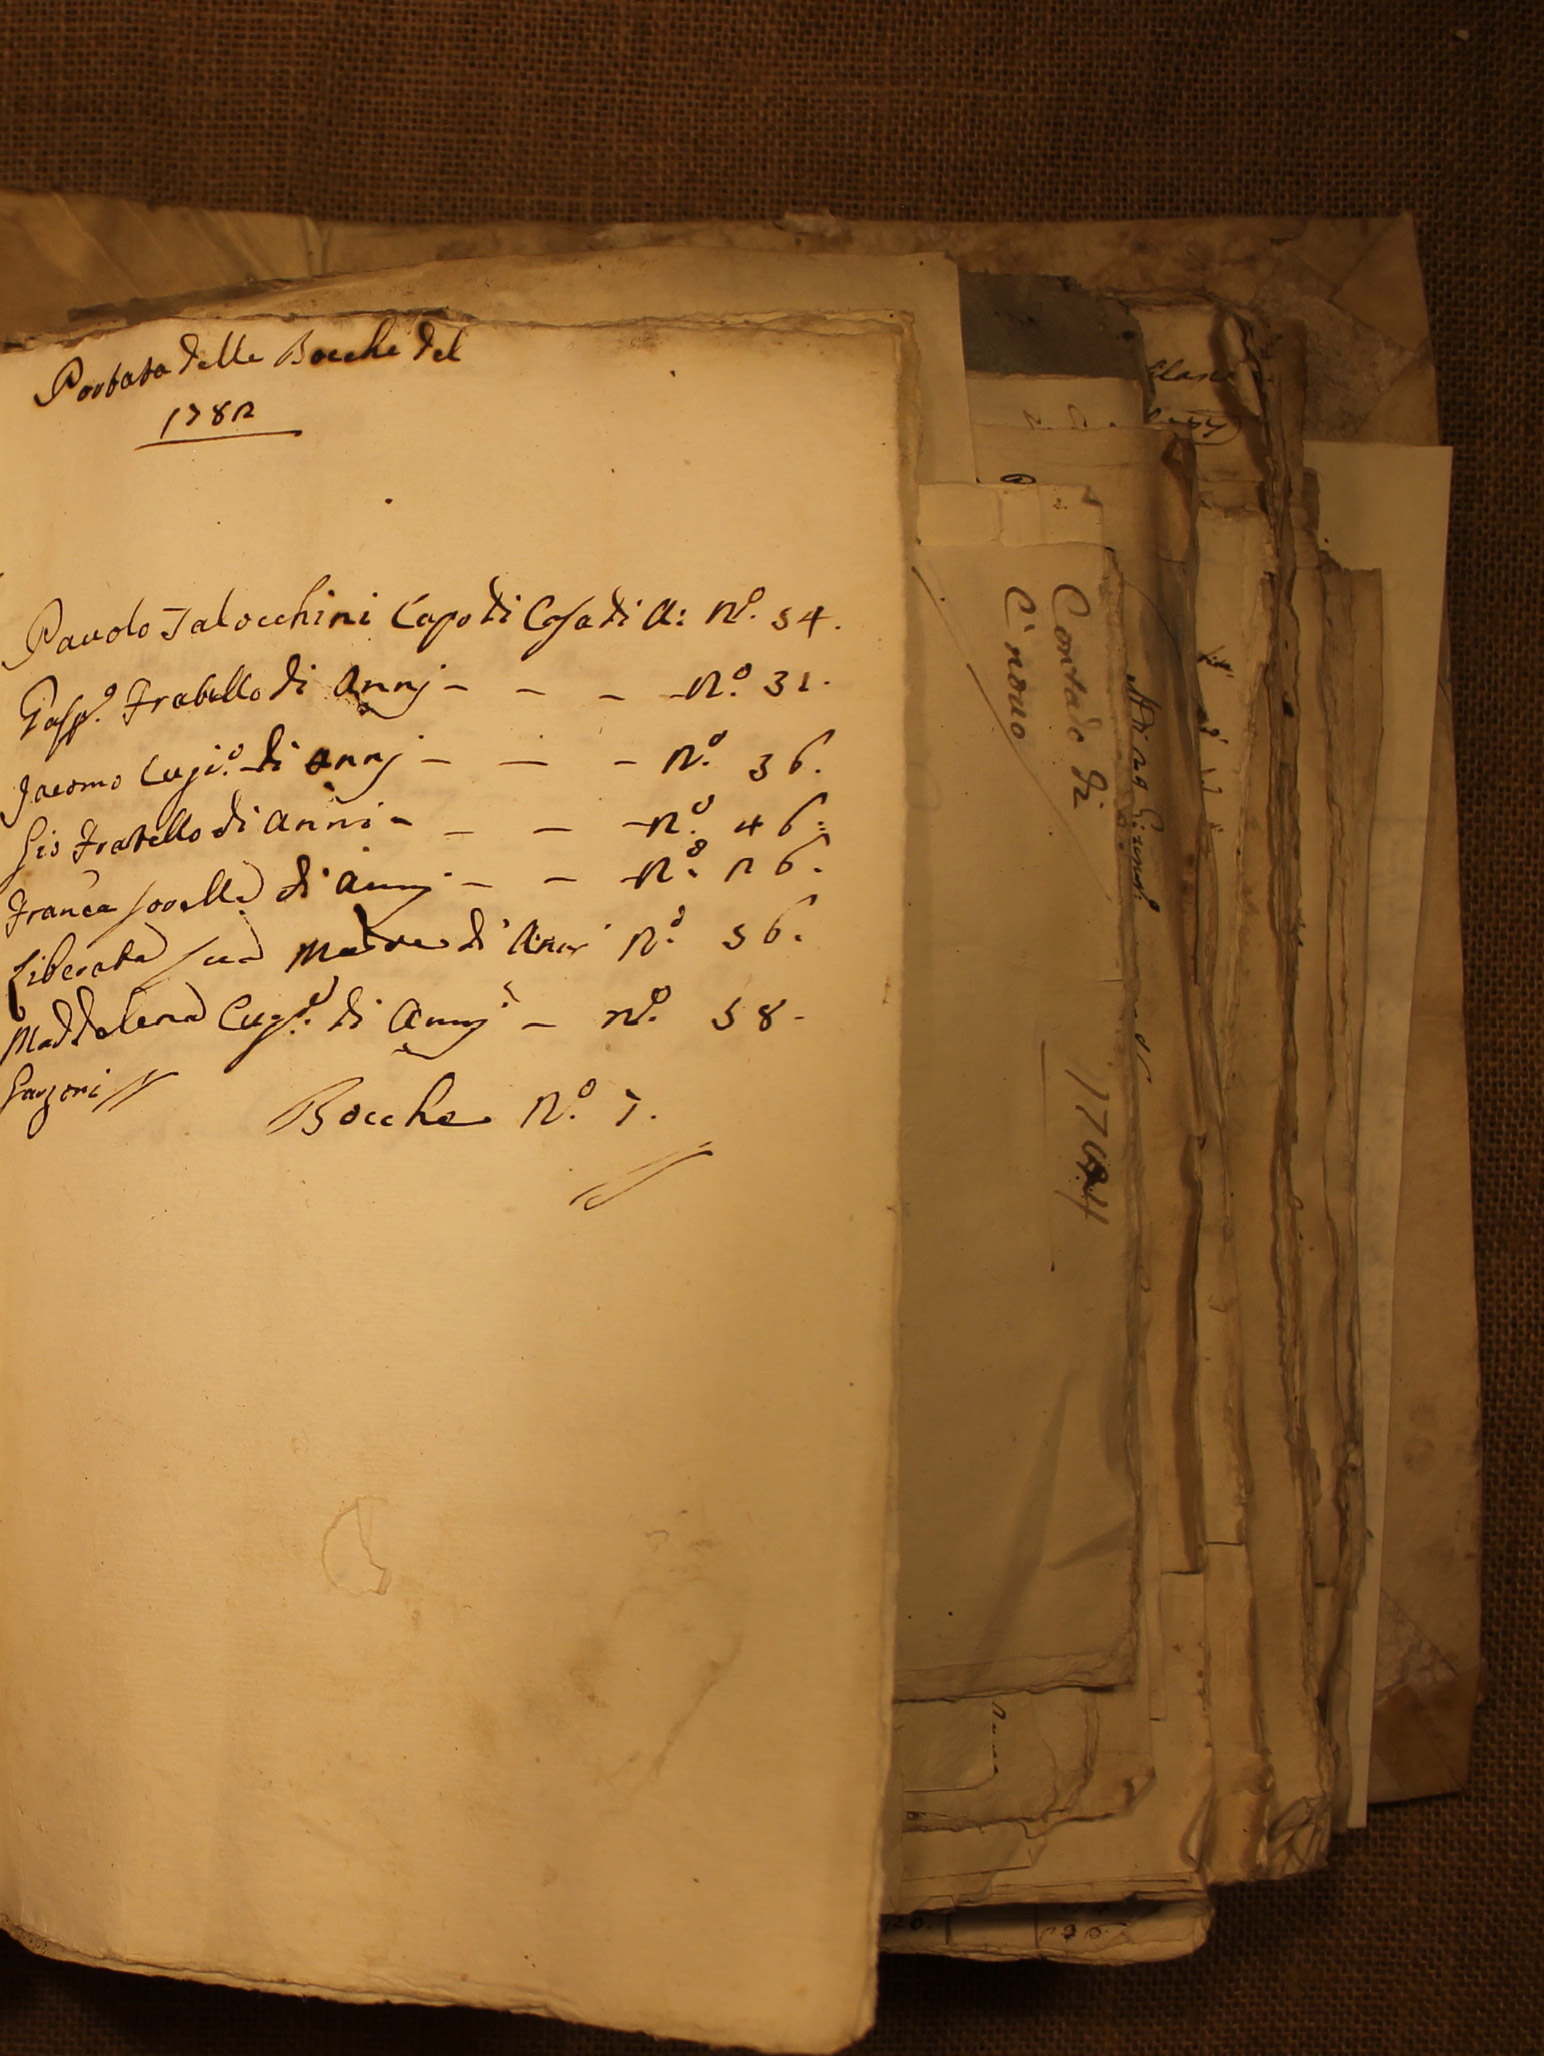 Portata delle Bocche del
1782
Pavolo Jalocchini Capo di Casa di A: N.º 54.
Gasp.º Fratello di Annj - - - N.º 31.
Jacomo Cugi.º di Annj - - - N.º 36.
Gio Fratello di Anni - - - N.º 46:
Franca sorella di Annj - - N.º 26.
Liberata sua Madre di Anni N.º 56.
Maddalena Cug.ª di Annj - N.º 58.
Garzoni //
Bocche N.º 7.
Contado di
C'nouo